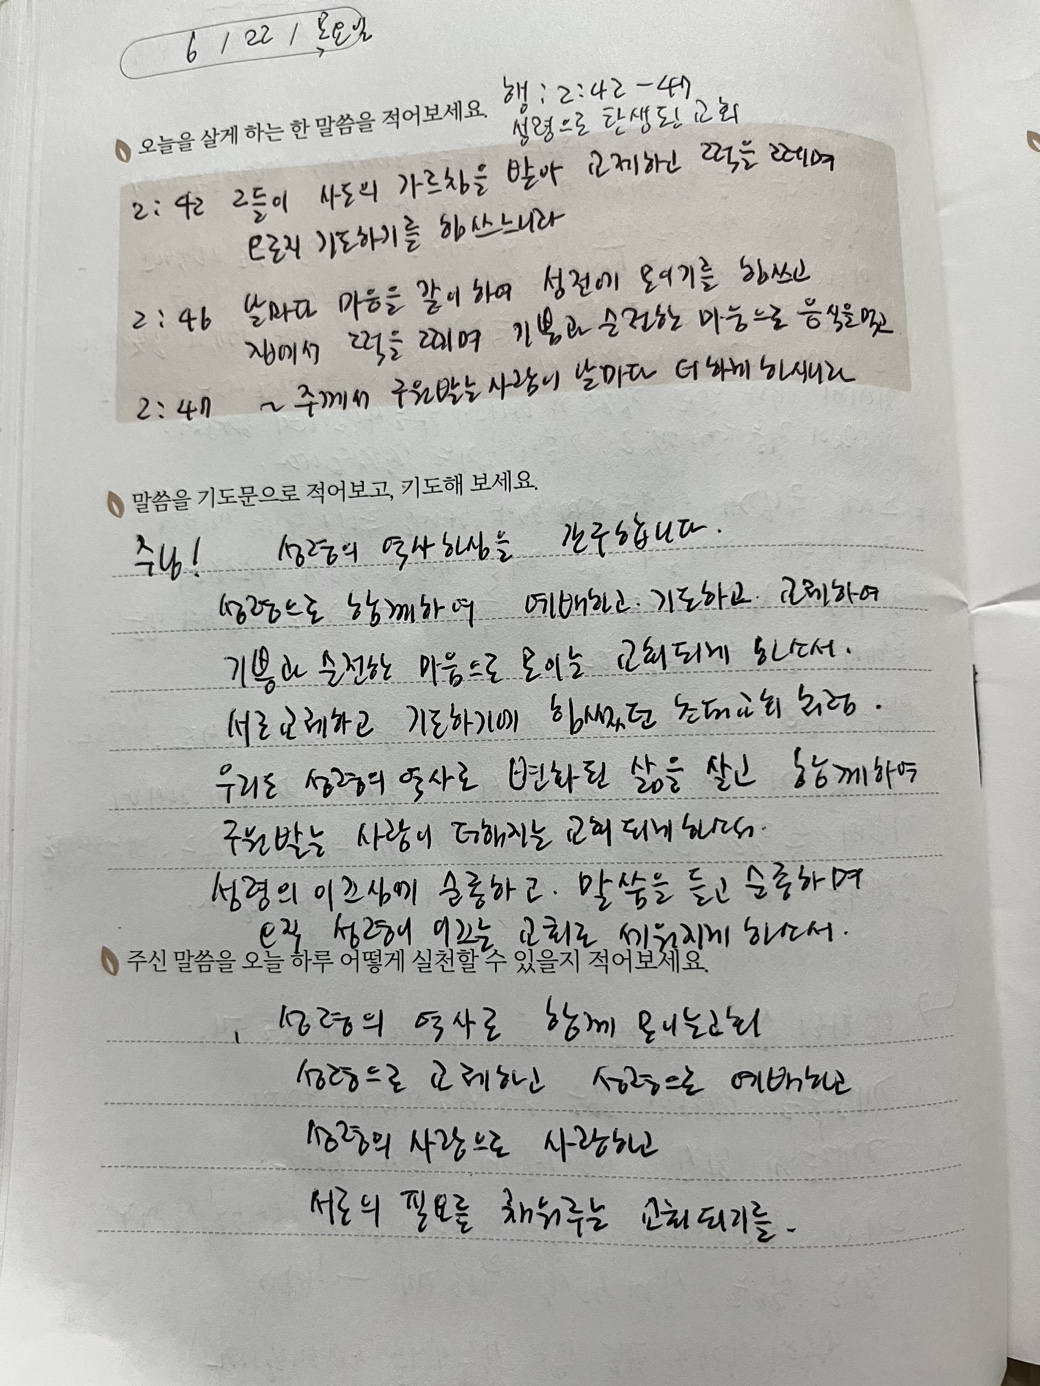 6 / 22 / 목요일
행 : 2:42 - 47
오늘을 살게 하는 한 말씀을 적어보세요.
성령으로 탄생된 교회
2 : 42 그들이 사도의 가르침을 받아 교제하고 떡을 떼며
오로지 기도하기를 힘쓰느니라
2 : 46 날마다 마음을 같이 하여 성전에 모이기를 힘쓰고
집에서 떡을 떼며 기쁨과 순전한 마음으로 음식을 먹고
2 : 47 ~ 주께서 구원받는 사람이 날마다 더하게 하시니라
말씀을 기도문으로 적어보고, 기도해 보세요.
주님! 성령의 역사하심을 간구합니다.
성령으로 함께하여 예배하고. 기도하고. 교제하여
기쁨과 순전한 마음으로 모이는 교회되게 하소서.
서로 교제하고 기도하기에 힘썼던 초대교회 처럼.
우리도 성령의 역사로 변화된 삶을 살고 함께하여
구원받는 사람이 더해지는 교회 되게 하소서.
성령의 이끄심에 순종하고. 말씀을 듣고 순종하며
오직 성령이 이끄는 교회로 세워지게 하소서.
주신 말씀을 오늘 하루 어떻게 실천할 수 있을지 적어보세요.
성령의 역사로 함께 모이는교회
성령으로 교제하고 성령으로 예배하고
성령의 사랑으로 사랑하고
서로의 필요를 채워주는 교회되기를.